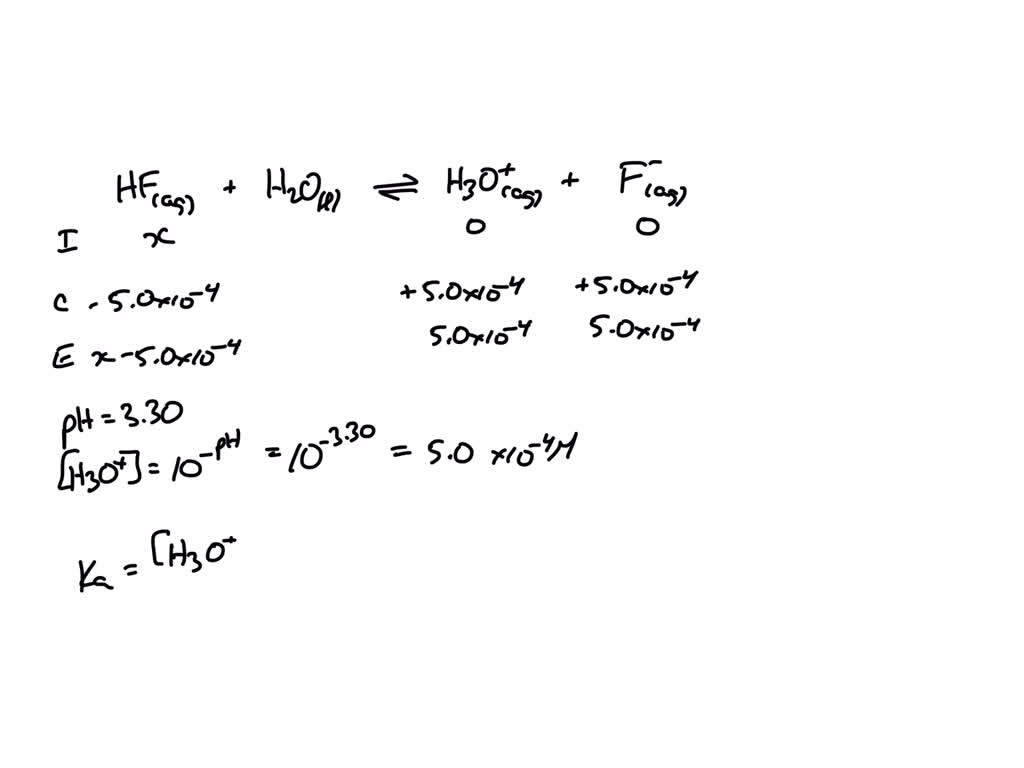 HF(aq) + H₂O(l) ⇌ H₃O⁺(aq) + F⁻(aq)
I x 0 0
C - 5.0×10⁻⁴ +5.0×10⁻⁴ +5.0×10⁻⁴
E x-5.0×10⁻⁴ 5.0×10⁻⁴ 5.0×10⁻⁴
pH = 3.30
[H₃O⁺] = 10⁻ᵖᴴ = 10⁻³·³⁰ = 5.0 ×10⁻⁴M
Ka = [H₃O⁺